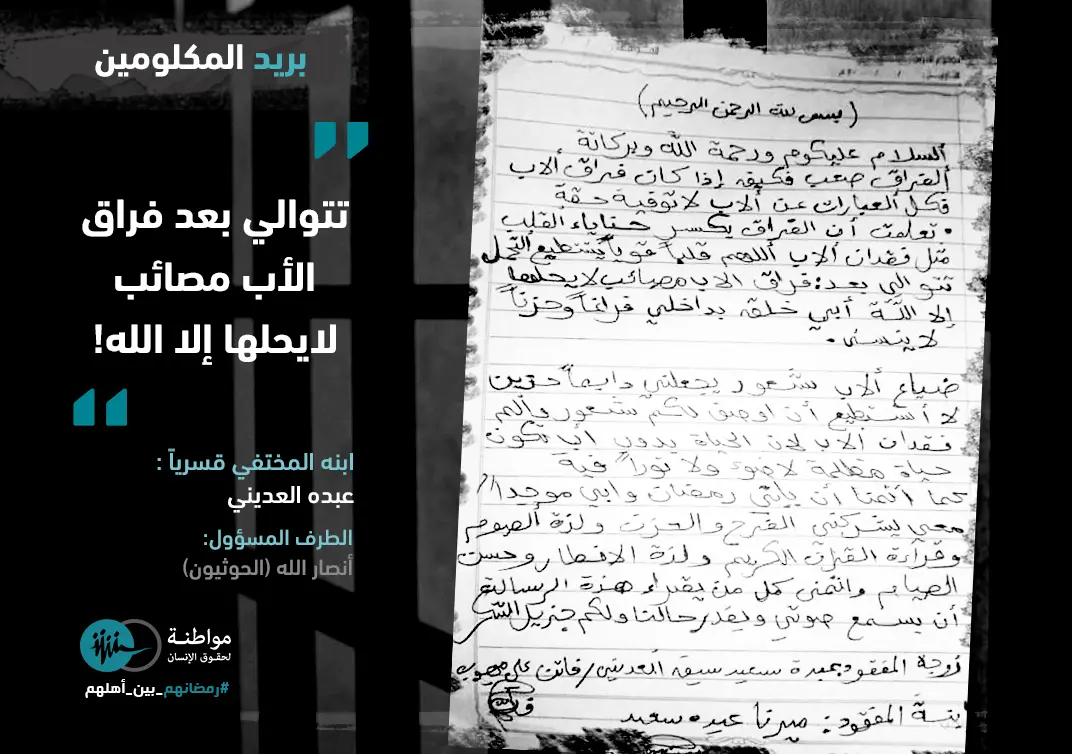 بريد المكلومين
تتوالي بعد فراق
الأب مصائب
لايحلها إلا الله!
ابنه المختفي قسرياً :
عبده العديني
الطرف المسؤول:
أنصار الله (الحوثيون)
مواطنـة
لحقوق الإنسان
#رمضانهم_بين_أهلهم
(بسم لله الرحمن الرحيم)
ألسلام عليكوم ورحمة الله وبركاتة
ألفراق صعب فكيف إذا كان فراق ألاب
فكل ألعبارات عن ألاب لا توفية حقة
• تعلمت أن الفراق يكسر خناياء القلب
مثل فقدان ألاب أللهم قلباً قوياً يستطيع التحمل
تتوالي بعد فراق الاب مصائب لا يحلها
إلا اللّة أبي خلق بداخلي فراغاً وحزناً
لا ينسى .
ضياع ألاب شعور يجعلني دايماً حزين
لا أستطيع أن اوصف لكم شعور وألم
فقدان ألاب لان الحياة بدون أب تكون
حياة مظلمة لا ضوء ولا نوراً فية
كما أتمنا أن يأتي رمضان وابي موجد
معي يشركني الفرح والحزن ولذة ألصوم
وقراءة القران الكريم ولذة الافطار وحسن
الصيام واتمنى كل من يقراء هذة الرسالة
أن يسمع صوتي ويقدر حالتنا ولكم جزيل الشكر
زوجة المفقود سعيد سيف ألعديني / فاتن علي
بنسة المفقود : ميرنا عبده سعيد